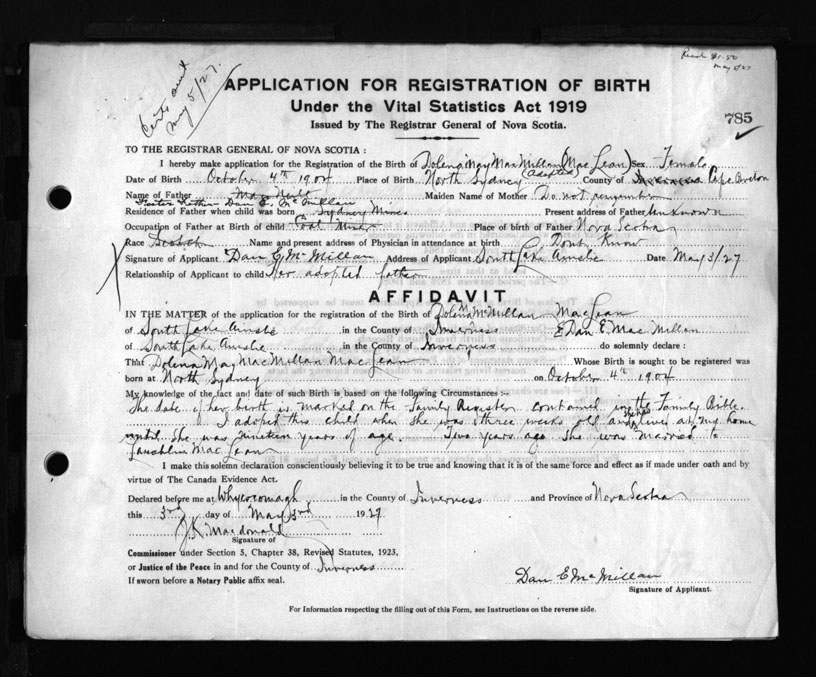 Certs sent
May 5/27.
May 5/27
APPLICATION FOR REGISTRATION OF BIRTH
Under the Vital Statistics Act 1919
Issued by The Registrar General of Nova Scotia.
785
TO THE REGISTRAR GENERAL OF NOVA SCOTIA :
I hereby make application for the Registration of the Birth of Dolena May MacMillan (MacLean) Sex Female
(adopted)
Date of Birth October 4th 1904 Place of Birth North Sydney County of Cape Breton
Name of Father Maiden Name of Mother Do not remember
Foster Father - Dan E. McMillan
Residence of Father when child was born Sydney Mines Present address of Father Unknown
Occupation of Father at Birth of child Coal Miner Place of birth of Father Nova Scotia
Race Scotch Name and present address of Physician in attendance at birth Dont Know
Signature of Applicant Dan E McMillan Address of Applicant South Lake Ainslie Date May 3/27
Relationship of Applicant to child Her adopted father
AFFIDAVIT
IN THE MATTER of the application for the registration of the Birth of Dolena M McMillan MacLean
of South Lake Ainslie in the County of Inverness Dan E. MacMillan
of South Lake Ainslie in the County of Inverness do solemnly declare :
That Dolena May MacMillan MacLean Whose Birth is sought to be registered was
born at North Sydney on October 4th 1904
My knowledge of the fact and date of such Birth is based on the following Circumstances :-
The date of her birth is marked on the Family Register contained in the Family Bible.
I adopted this child when she was three weeks old and she lived at my home
until she was nineteen years of age. Two years ago she was married to
Lauchlin MacLean
I make this solemn declaration conscientiously believing it to be true and knowing that it is of the same force and effect as if made under oath and by
virtue of The Canada Evidence Act.
Declared before me at Whycocomagh in the County of Inverness and Province of Nova Scotia
this 3rd day of May 3rd 1927
J.K. Macdonald
Signature of
Commissioner under Section 5, Chapter 38, Revised Statutes, 1923,
or Justice of the Peace in and for the County of Inverness
If sworn before a Notary Public affix seal.
Dan E McMillan
Signature of Applicant.
For Information respecting the filling out of this Form, see Instructions on the reverse side.